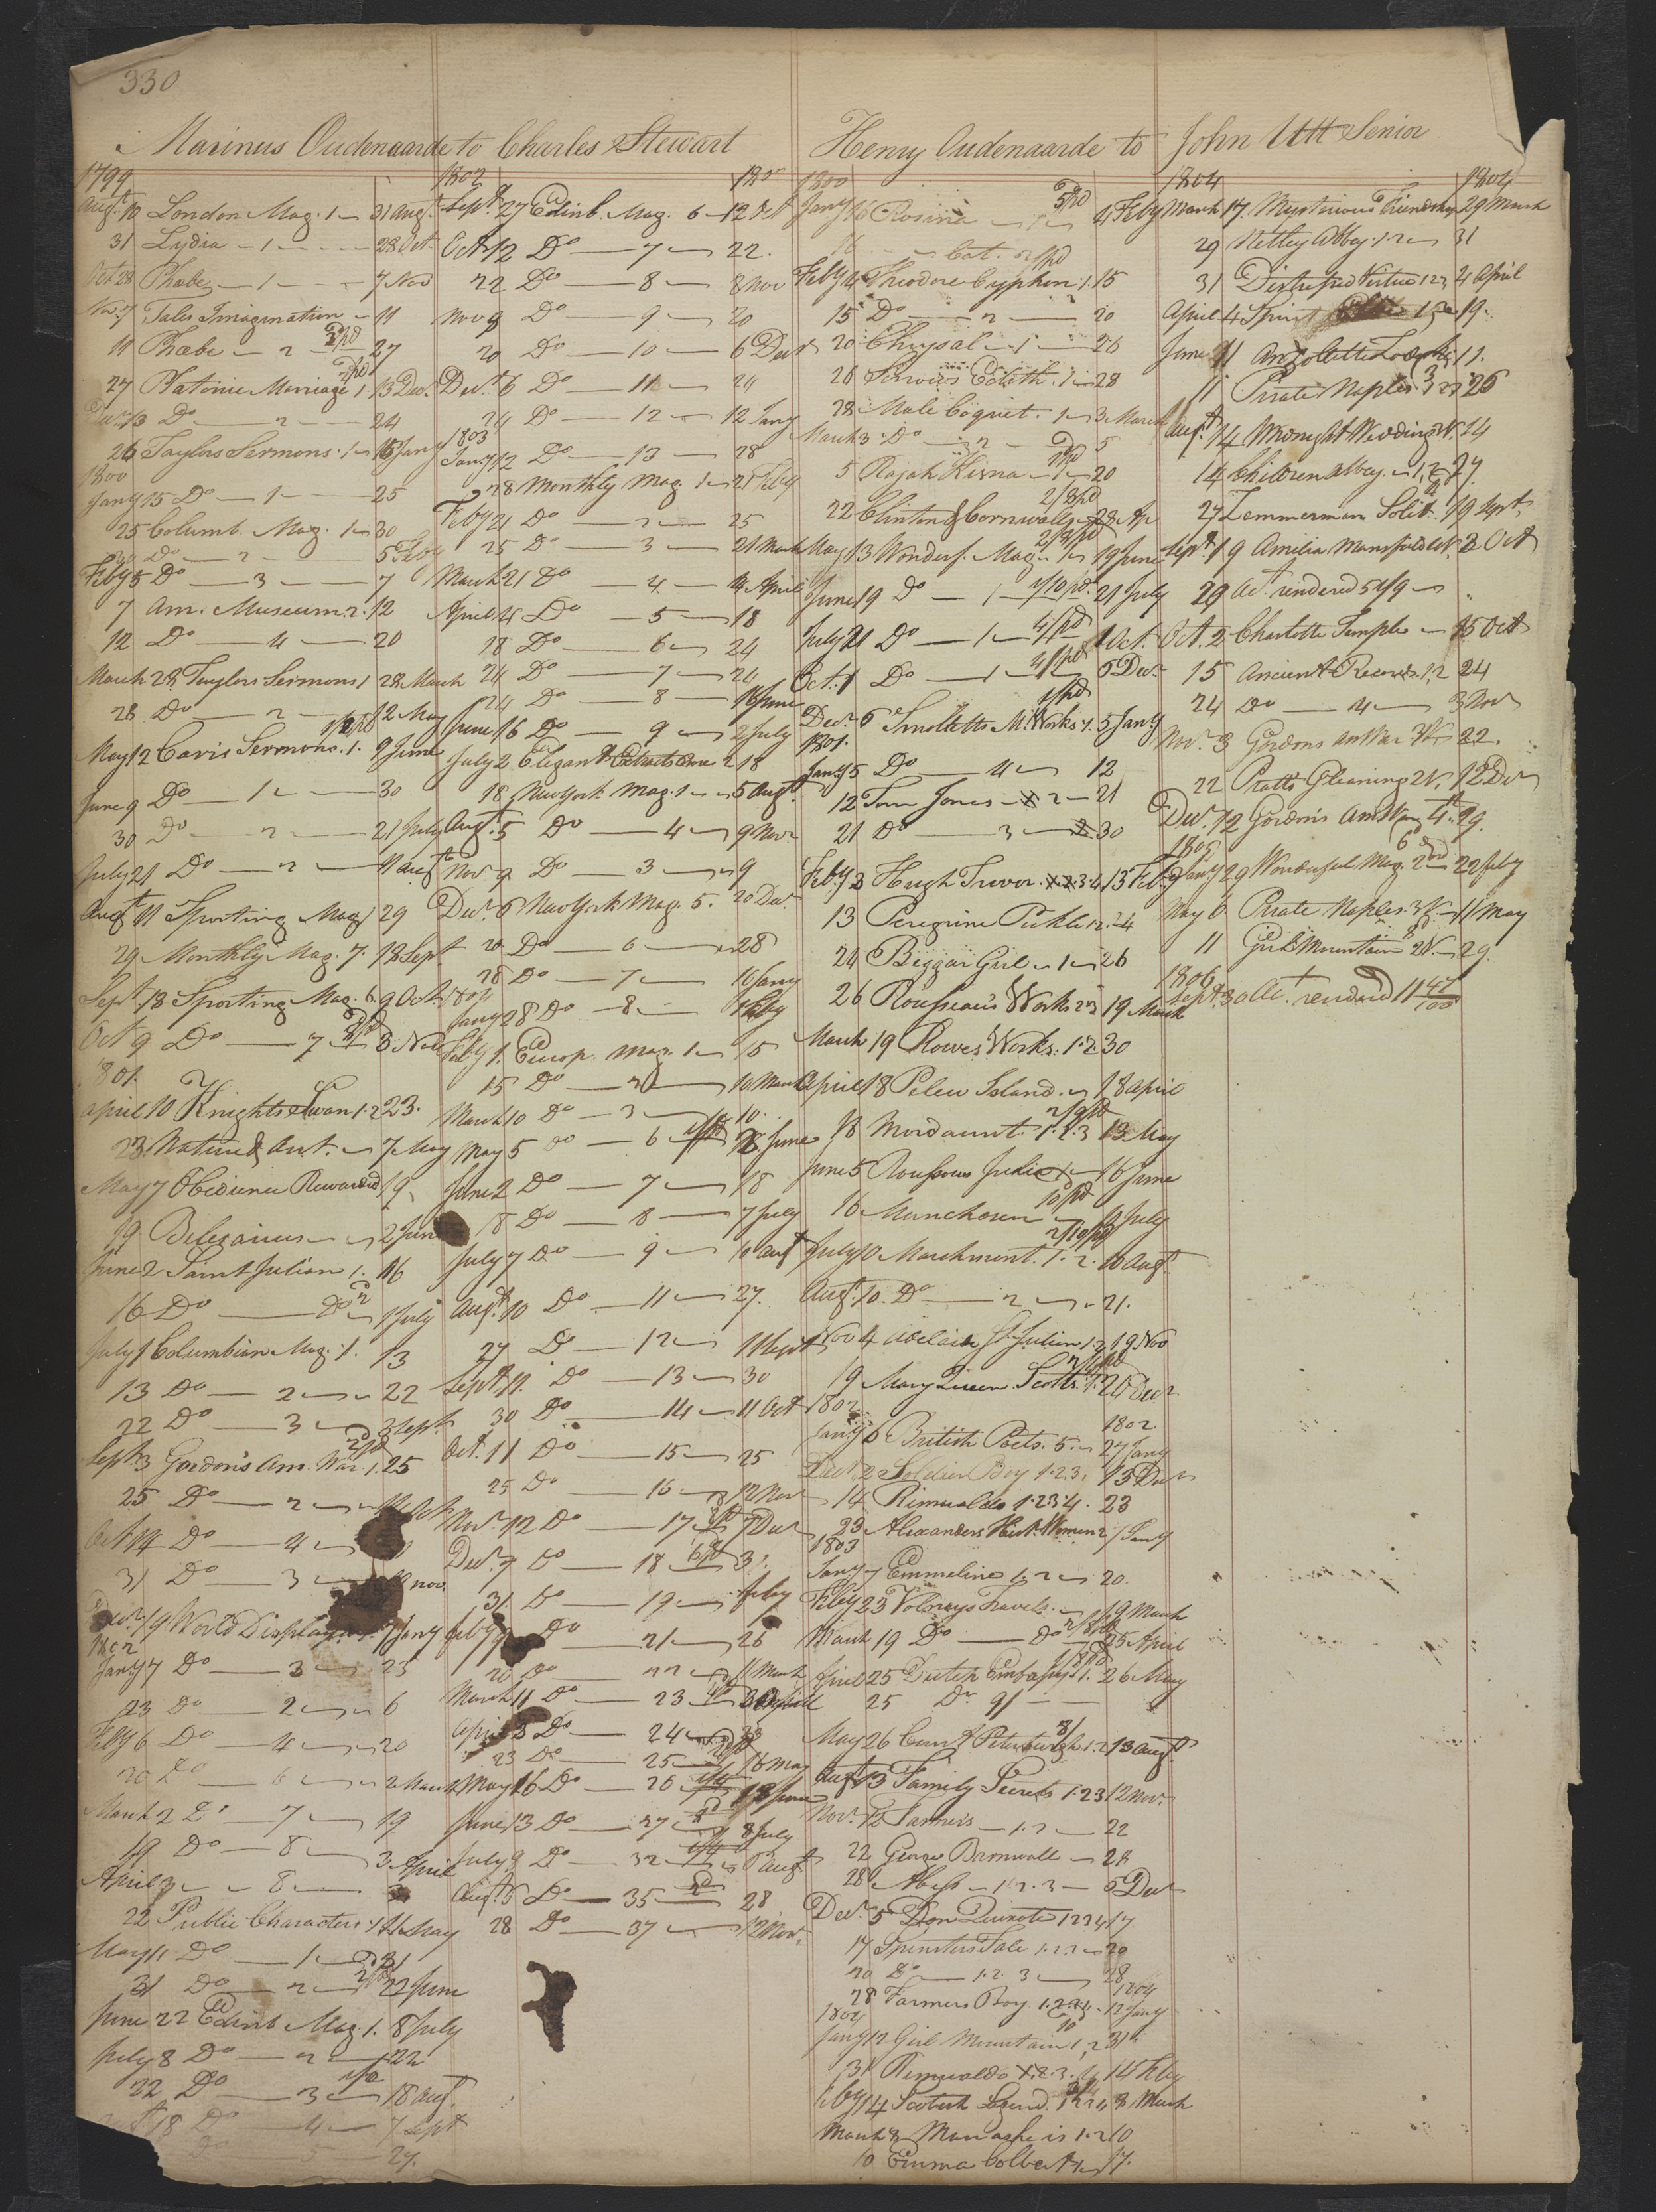 330
Marinus Oudenaarde to Charles Stewart
1799
Augt. 10 London Mag. 1 31 Augt.
31 Lydia 1 28 Oct.
Oct 28 Phœbe 1 7 Nov
Nov. 7 Tales Imagination 11
11 Phœbe 2 27
27 Platonic Marriage 1 13 Dec.
Decr 13 Do 2 24
26 Taylors Sermons 1 15 Jany
1800
Jany 15 Do 1 25
25 Columb. Mag. 1 30
30 Do 2 5 Feby
Feby 5 Do 3 7
7 Am. Museum 2. 12
12 Do 4 20
March 28 Taylors Sermons 1 28 March
28 Do 2 12 May
May 12 Cavis Sermons. 1. 9 June
June 9 Do 1 30
30 Do 2 21 July
July 21 Do 2 11 Augt
Augt 11 Sporting Mag 29
29 Monthly Mag. 7. 18 Sept
Sept. 18 Sporting Mag. 6. 9 Oct.
Oct 9 Do 7 3 Nov
1801.
April 10 Knights Swan 1.2 23.
23 Nature & Art. 7 May
May 7 Obedience Rewarded 19
19 Belezaious 2 June
June 2 Saint Julian 1. 16
16 Do Do 2 1 July
July 1 Columbian Mag. 1. 13
13 Do 2 22
22 Do 3 3 Sept.
Sept. 3 Gordon's Am. War. 1. 25
25 Do 2 14 Oct
Oct 14 Do 4
31 Do 3 nov.
Decr. 19 World Displayed 7 Jany
1802
Jany 7 Do 3 23
23 Do 2 6
Feby 6 Do 4 20
20 Do 6 2 March
March 2 Do 7 19
19 Do 8 3 April
April 3 8.
22 Public Characters 1 11 May
May 11 Do 1 31
31 Do 2 22 June
June 22 Edinb Mag. 1. 8 July
July 8 Do 2 22
22 Do 3 18 Augt.
18 Do 4 7 Sept
27.
1802
Sept. 27 Edinb. Mag. 6 12 Oct
Oct 12 Do 7 22.
22 Do 8 8 Nov
Nov 9 Do 9 20
20 Do 10 6 Decr
Decr. 6 Do 11 24
24 Do 12 12 Jany
1803
Jany 12 Do 13 28
28 Monthly Mag. 1 21 Feby
Feby 21 Do 2 25
25 Do 3 21 March
March 21 Do 4 4 April
April 4 Do 5 18
18 Do 6 24
24 Do 7 24
24 Do 8 16 June
June 16 Do 9 2 July
July 2 Elegant Extracts 2 18
18 New York Mag. 1 5 Augt.
Augt. 5 Do 4 9 Novr
Nov. 9 Do 3 9
Decr. 6 New York Mag. 5. 20 Decr
20 Do 6 28
28 Do 7 10 Jany
1804
Jany 28 Do 8 1 Feby
Feby 1. Europ. Mag. 1 15
15 Do 2 10 March
March 10 Do 3 10.
May 5 Do 6 June
June 2 Do 7 18
18 Do 8 7 July
July 7 Do 9 10 Augt
Augt. 10 Do 11 27.
27 Do 12 11 Sept
Sept 11. Do 13 30
30 Do 14 11 Oct
Oct. 11 Do 15 25
25 Do 16 12 Novr
Novr. 12 Do 17 7 Decr
Decr. 7 Do 18 31.
31. Do 19 Feby
Feby 9 Do 21 26
26 Do 22 11 March
March 11 Do 23 April
April 8 Do 24 23
23 Do 25 16 May
May 16 Do 26 13 June
June 13 Do 27 8 July
July 9 Do 32 5 Augt
Augt. 5 Do 35 28
28 Do 37 12 Novr.
Henry Oudenaarde to John Utt Senior
1800
Jany 16 Rosina 1 4 Feby
Feby 4 Theodore Cyphon 1. 15
15 Do 2 20
20 Chrysal 1 26
26 Edith. 1 28
28 Male Coquet. 1 3 March
March 3 Do 2 5
5 Rajah Kisna 1 20
22 Clinton & Cornwallis 28 Ap
May 13 Wonderf. Mag. 1 19 June
June 19 Do 1 21 July
July 21 Do 1 1 Oct.
Oct. 1 Do 1 6 Decr.
Decr. 6 Smolletts M. Works 1. 5 Jany
1801.
Jany 5 Do 4 12
12 Tom Jones 2 21
21 Do 3 30
Feby 3 Hugh Trevor. 3.4 13 Feby
13 Peregrine Pickle 1.2. 24
24 Beggar Girl 1 26
26 Rousseau's Works 2.3 19 March
March 19 Rowes Works. 1.2. 30
April 18 Pelew Island 18 April
18 Mordaunt. 1.2.3 13 May
June 5 Rousseaus Julia 16 June
16 Munchosen 10 July
July 10 Marchmont. 1.2. 10 Augt.
Augt. 10. Do 2 21.
Nov 4 Adelaide St. Julian 1.2 19 Nov
19 Mary Queen Scotts. 1. 24 Decr.
1802 1802
Jany 6 British Poets. 5. 27 Jany
Decr. 2 Soldier Boy 1.2.3. 13 Decr
14 Rimualdo 1.2.3.4. 23
23 Alexanders Hist. Women 2 7 Jany
1803
Jany 7 Emmeline 1.2 20.
Feby 23 Volneys Travels. 19 March
March 19 Do Do 25 April
April 25 Dutch Embassy 1. 26 May
25 Do 9/
May 26 Court Petersburgh 1.2 13 Augt
Augt 13 Family Secrets 1.2.3 12 Novr.
Novr. 12 Farmers 1.2 22
22 George Barnwell 28
28 Abess 1.2.3 5 Decr
Decr. 5 Don Quixote 1.2.3.4 17
17 Spinsters Tale 1.2.3 20
20 Do 1.2.3 28
28 Farmers Boy 1.2.3.4. 12 Jany
1804 1804
Jany 12 Girl Mountain 1,2 31.
31 Rimualdo 1.2.3.4 14 Feby
Feby 14 Scotish Legend. 1.2.3.4 8 March
March 8 Man as he is 1.2 10
10 Emma Colbert 17.
1804 1804
March 17. Mysterious Friendship 29 March
29 Netley Abbey. 1.2 31
31 Distressed Virtue 1.2.3 4 April
April 4 Spirit 19
June 11 11.
11 Pirate Naples. 1.2.3 26
Augt. 14 Wknight Wedding 14
14 Children Abbey 1,2 27.
27 Zemmerman Solit. 19 Sept.
Sept. 19 Amelia Mansfield 2 Oct
29 act. rendered
Oct. 2 Charlotte Temple 15 Oct
15 Ancient Records. 1,2 24
24 Do 4 3 Novr
Novr. 3 Gordons am War 22.
22 Pratts Gleaning 2V. 12 Decr
Decr. 12 Gordon's Am War 4. 29.
1805
Jany 29 Wonderful Mag. 22 Feby
May 6 Pirate Naples. 3V. 11 May
11 Girl Mountain 2V. 29.
1806
Sept. 30 act. rendered 11 41/100